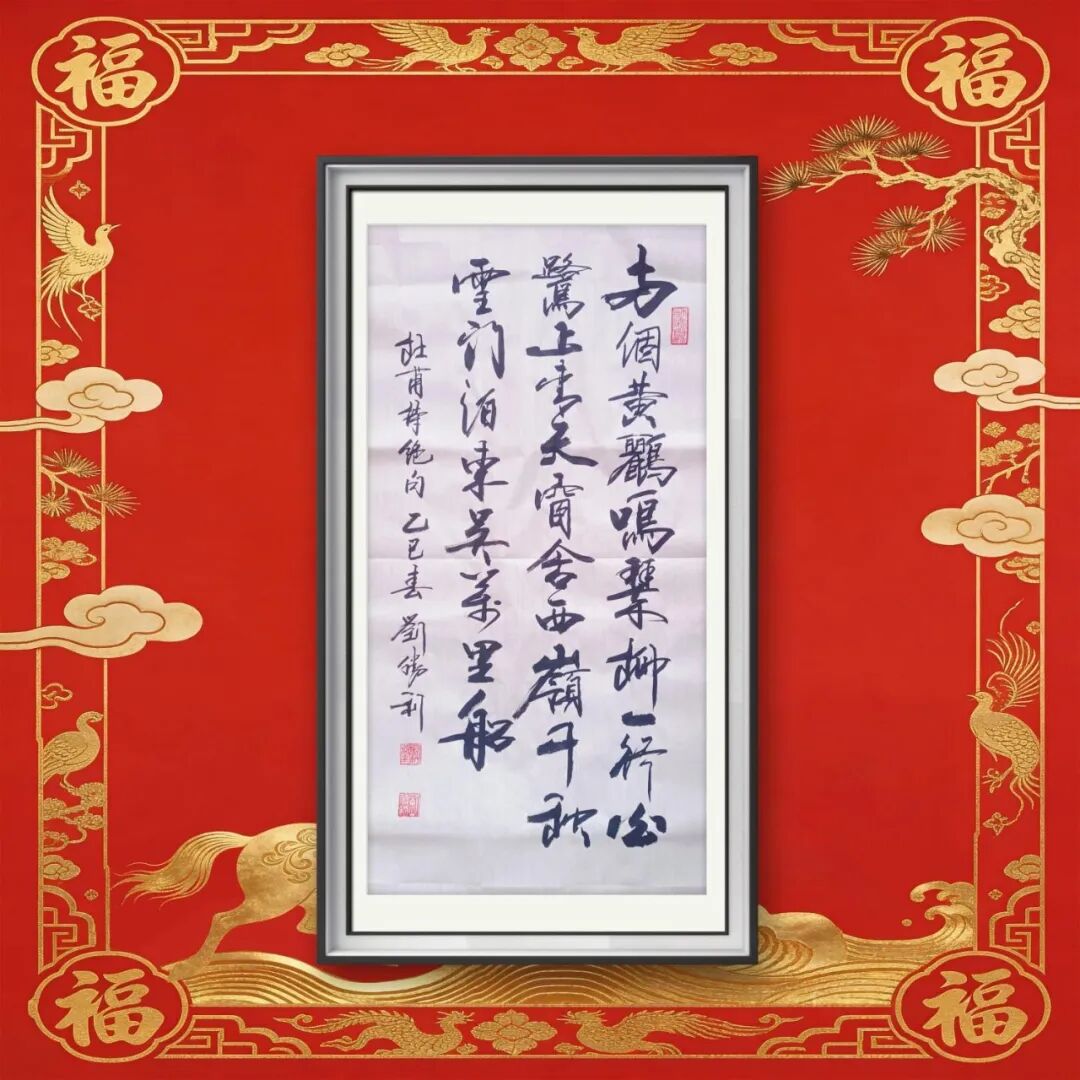 福
福
两個黄鸝鳴翠柳一行白
鷺上青天窗含西嶺千秋
雪门泊東吴萬里船
杜甫詩絶句 乙巳春 劉勝利
福
福